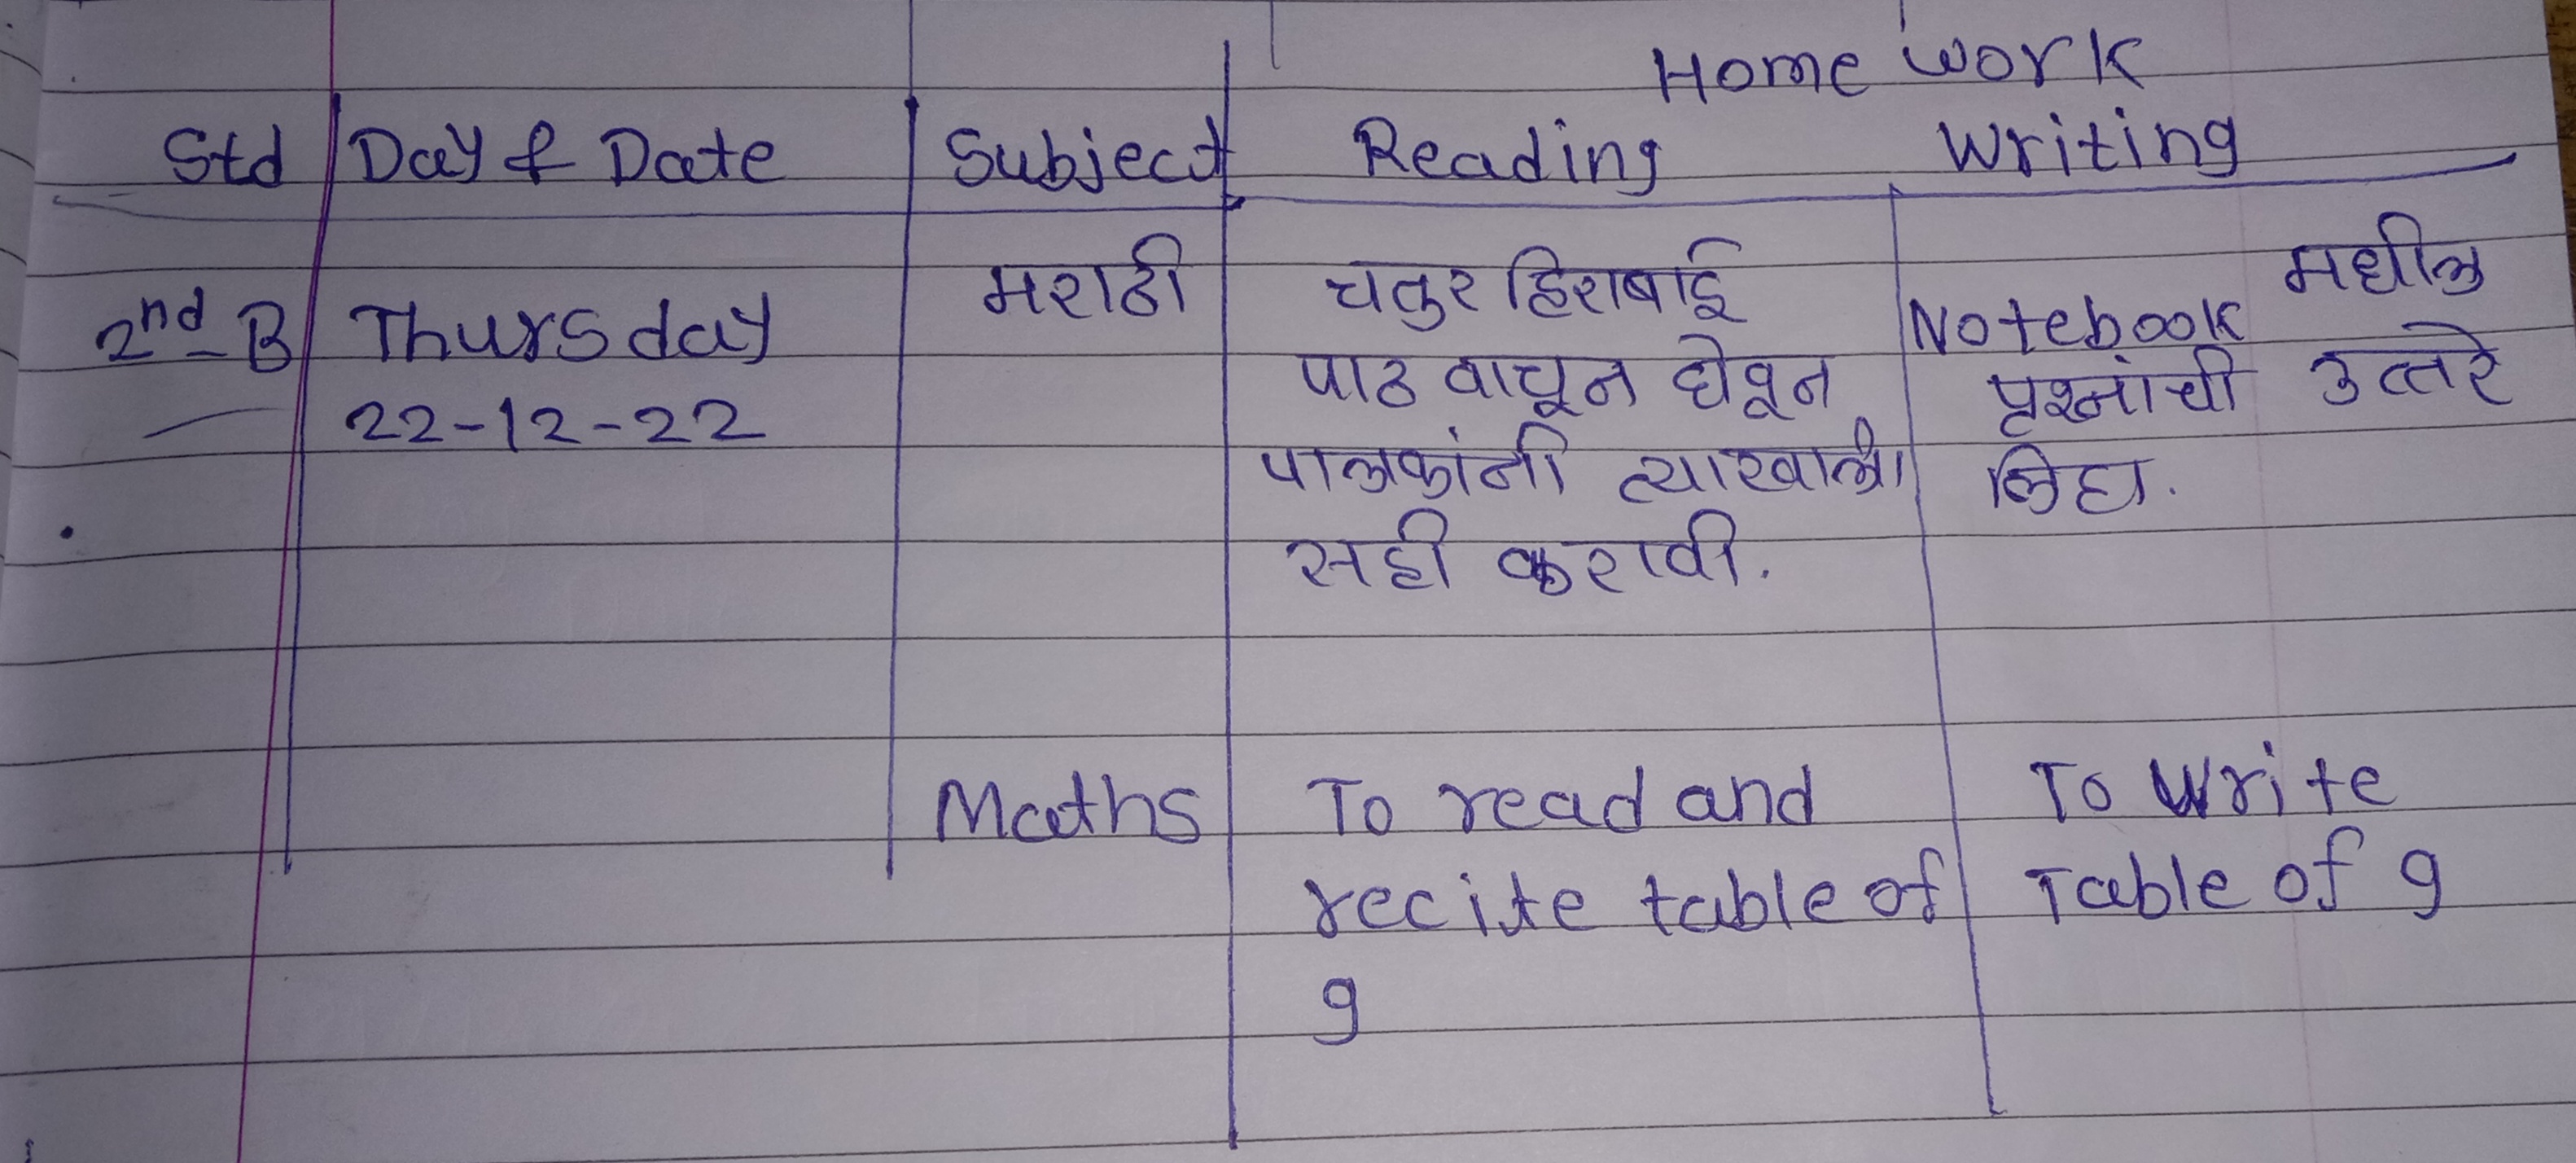 Home work
Std Day & Date Subject Reading Writing
2nd B Thursday मराठी चतुर हिराबाई Notebook मधील
22-12-22 पाठ वाचून घेवून प्रश्नांची उत्तरे
पालकांनी त्याखाली लिहा.
सही करावी.
Maths To read and To Write
recite table of Table of 9
9